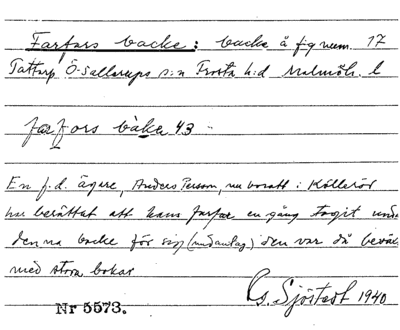 Farfars backe: backe å fig num. 17
Tattarp, Ö. Sallerups s:n Frosta h:d Malmöh. l
farfors bake 43
En f.d. ägare, Anders Persson, nu bosatt i Källeröd
har berättat att hans farfar en gång tagit unda
denna backe för sig (nedanlag) den var då beväx
med stora bokar
G. Sjöstedt 1940
Nr 5573.